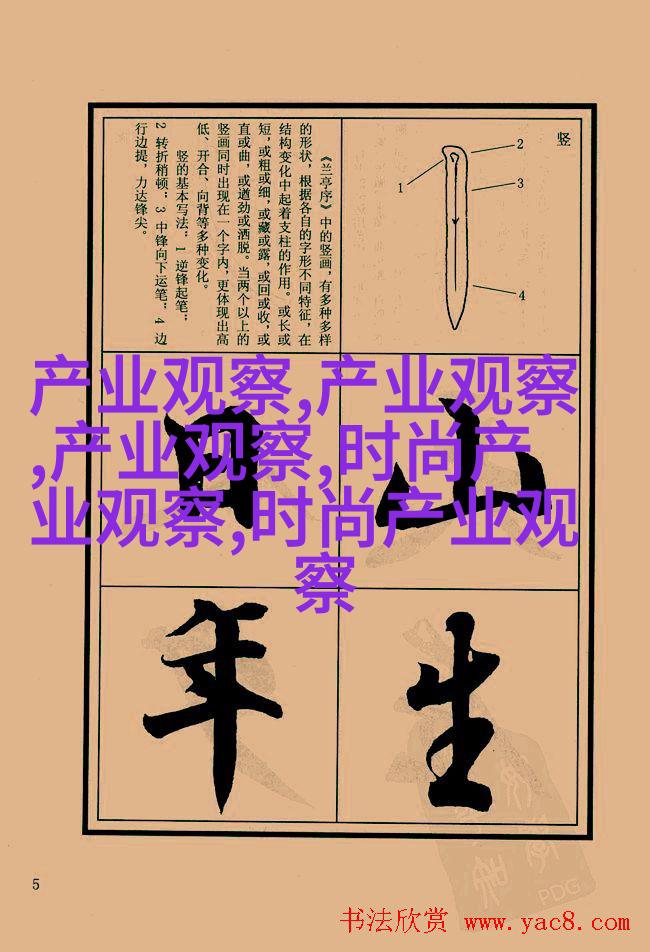 竖
1
2
3
4
《兰亭序》中的竖画，有多种多样
的形状，根据各自的字形不同特征，在
结构变化中起着支柱的作用。或长或
短，或粗或细，或藏或露，或回或收，或
直或曲，或遒劲或洒脱。当两个以上的
竖画同时出现在一个字内，更体现出高
低、开合、向背等多种变化。
竖的基本写法：1 逆锋起笔；
2 转折稍顿；3 中锋向下运笔；4 边
行边提，力达锋尖。
产业观察,产业观察
,产业观察,时尚产
业观察,时尚产业观
察
山
日
生
年
PDG
5
书法欣赏 www.yac8.com